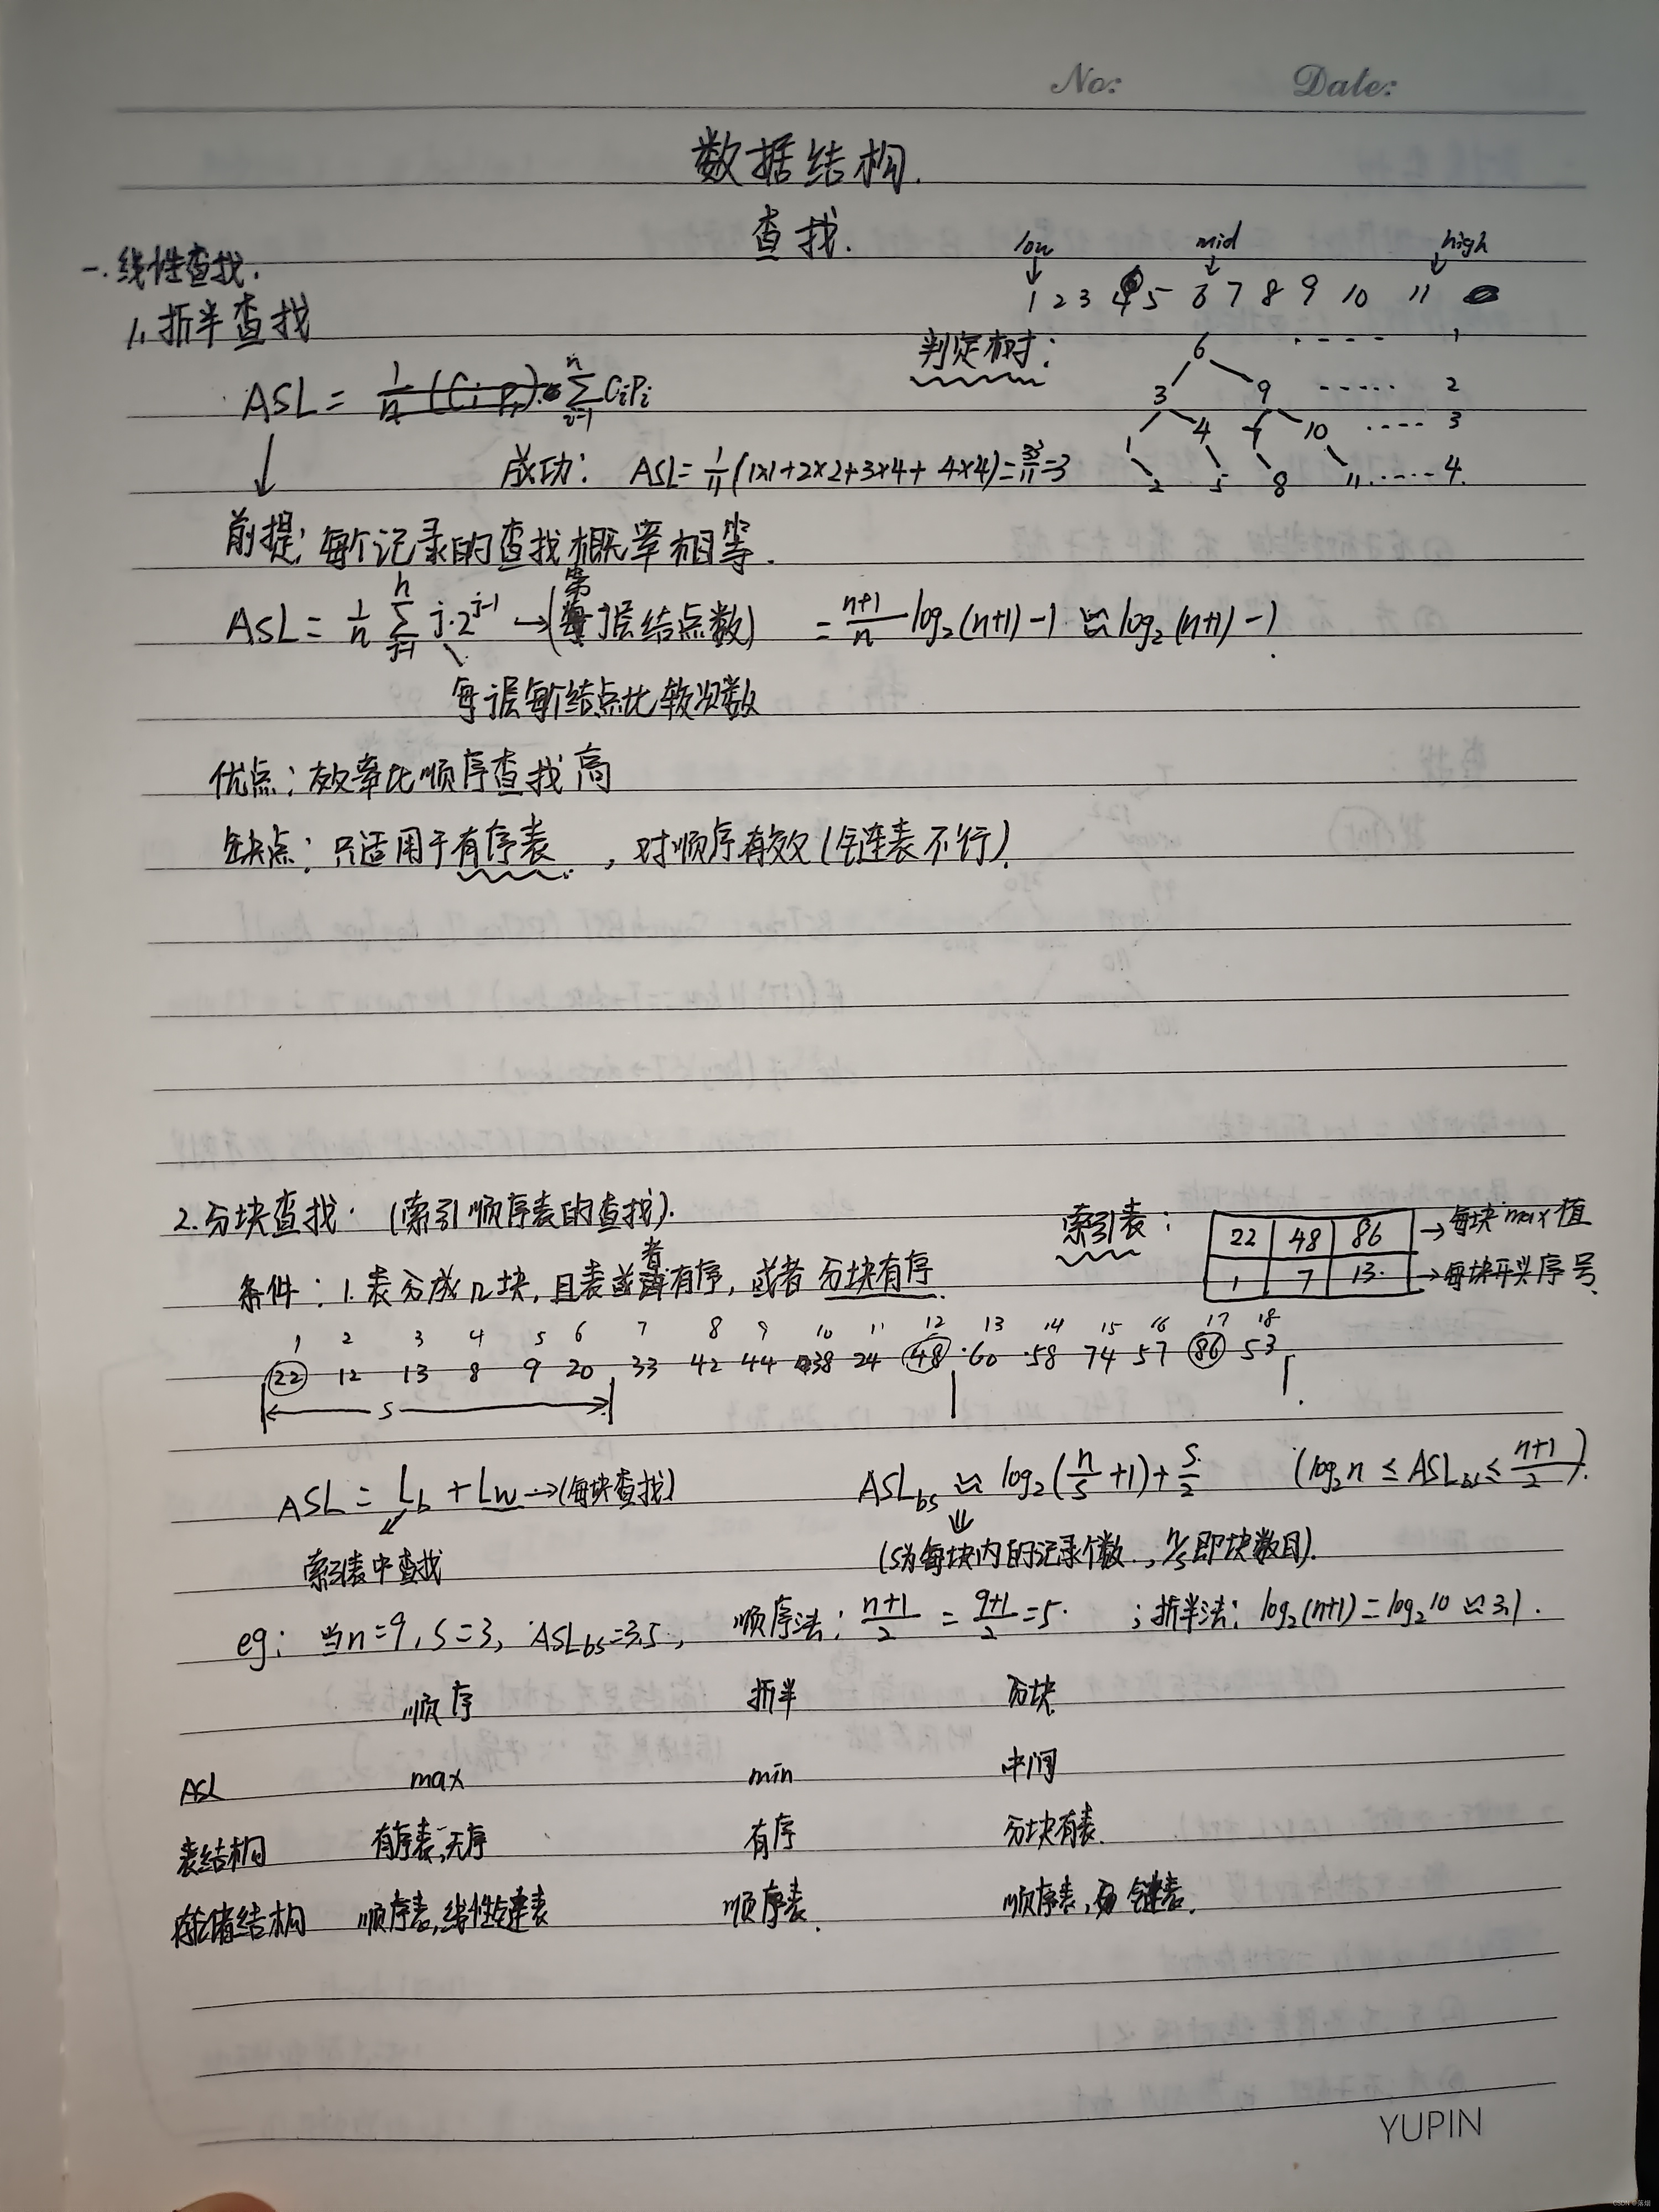 No: Date:
数据结构.
查找.
一.线性查找.
low mid high
1 2 3 4 5 6 7 8 9 10 11
1.折半查找
判定树:
6 ---- 1
3 9 ----- 2
1 4 7 10 ---- 3
2 5 8 11 ---- 4.
ASL = ∑ⁿᵢ₌₁ CiPi
成功: ASL=1/11(1×1+2×2+3×4+4×4)=33/11=3
前提:每个记录的查找概率相等.
ASL = 1/n ∑ⁿⱼ₌₁ j·2^(j-1) →(第j层结点数) = (n+1)/n log₂(n+1)-1 ≈ log₂(n+1)-1.
每层每个结点比较次数
优点:效率比顺序查找高
缺点:只适用于有序表,对顺序有效(链表不行).
2.分块查找.(索引顺序表的查找).
索引表:
22 48 86 →每块max值
1 7 13. →每块开头序号.
条件:1.表分成几块,且表或者有序,或者分块有序.
1 2 3 4 5 6 7 8 9 10 11 12 13 14 15 16 17 18
22 12 13 8 9 20 33 42 44 38 24 48 60 58 74 57 86 53
S
ASL = Lb + Lw →(每块查找)
索引表中查找
ASLbs ≈ log₂(n/s+1)+s/2 (log₂n ≤ ASLbs ≤ (n+1)/2).
(s为每块内的记录个数,n/s即块数目).
eg: 当n=9,S=3,ASLbs=3.5, 顺序法:(n+1)/2=(9+1)/2=5. ;折半法:log₂(n+1)=log₂10≈3.1.
顺序 折半 分块
ASL max min 中间
表结构 有序表,无序 有序 分块有表.
存储结构 顺序表,线性链表 顺序表. 顺序表,链表.
YUPIN